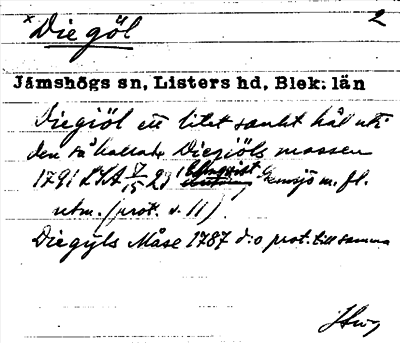 × Diegöl 2
Jämshögs sn, Listers hd, Blek. län
Diegiöl ett litet sankt hål uti
den så kallade Diegiöls mossen
1791 LSA 29 Gemsjö m. fl.
utm. (prot. s. 11).
Diegyls Måse 1787 d:o prot. till samma